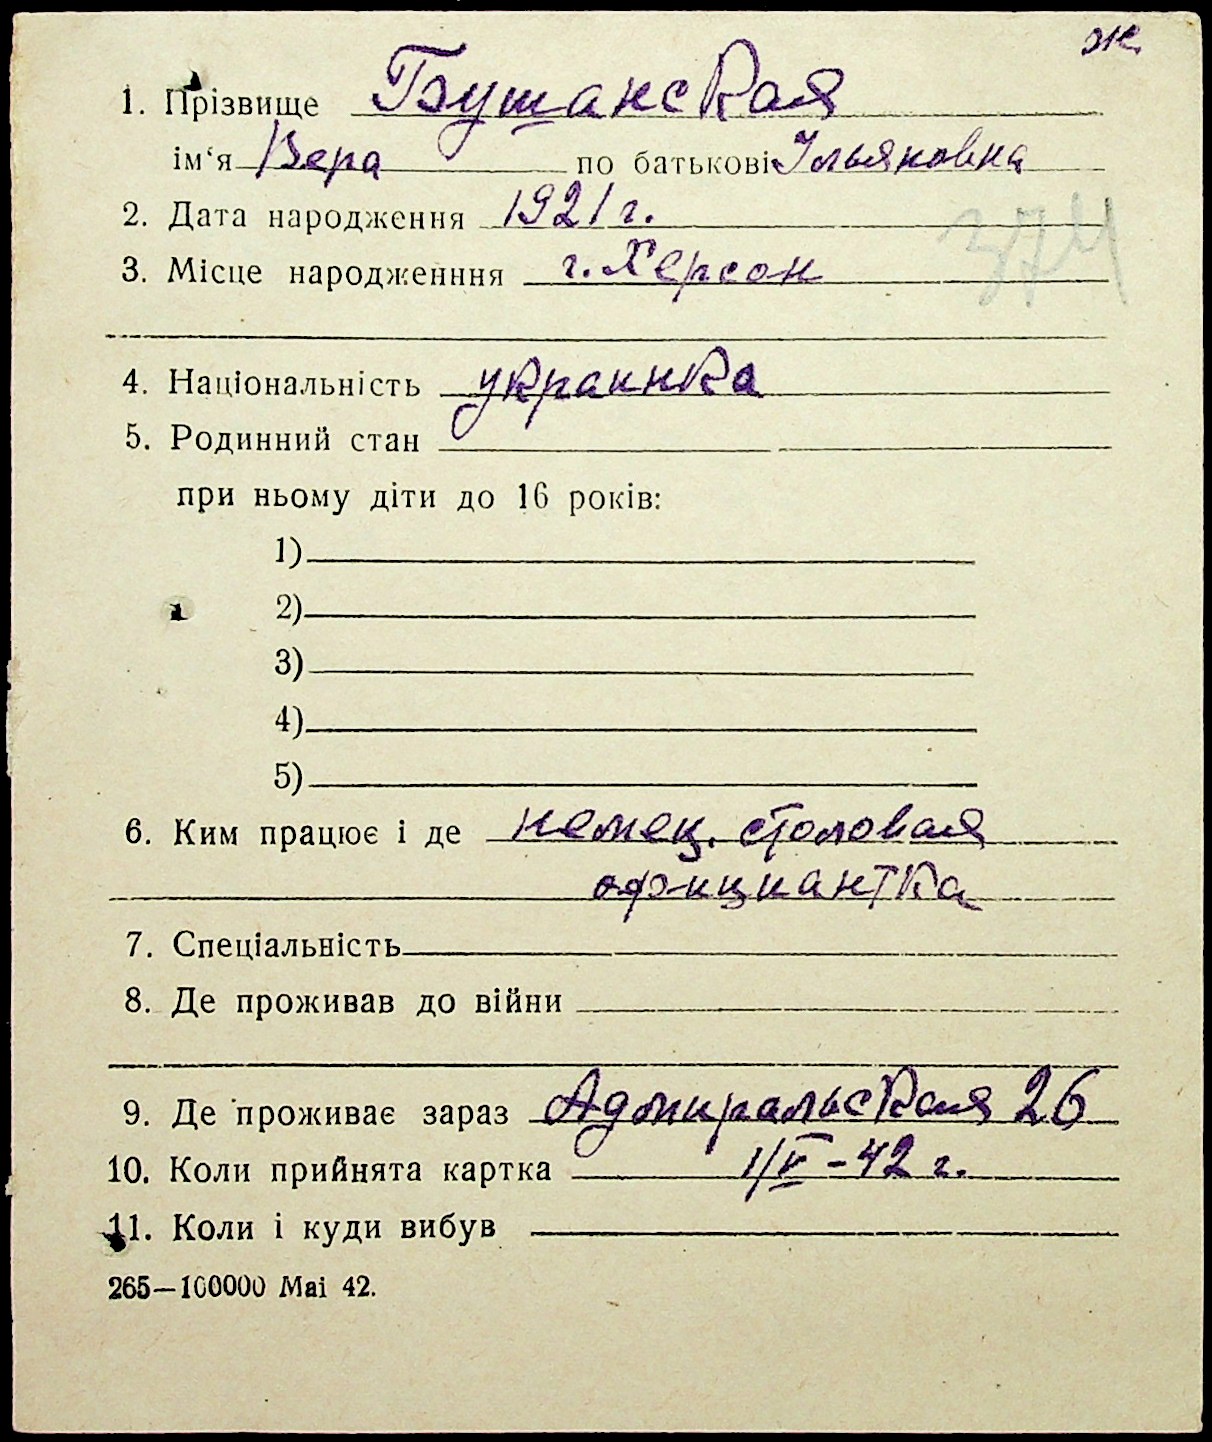 ж
1. Прізвище Бушанская
ім‘я Вера по батькові Ильяновна
2. Дата народження 1921 г.
374
3. Місце народженння г. Херсон
4. Національність украинка
5. Родинний стан
при ньому діти до 16 років:
1)
2)
3)
4)
5)
6. Ким працює і де немец. столовая
официантка
7. Спеціальність
8. Де проживав до війни
9. Де проживає зараз Адмиральская 26
10. Коли прийнята картка 1/V-42 г.
11. Коли і куди вибув
265—100000 Mai 42.